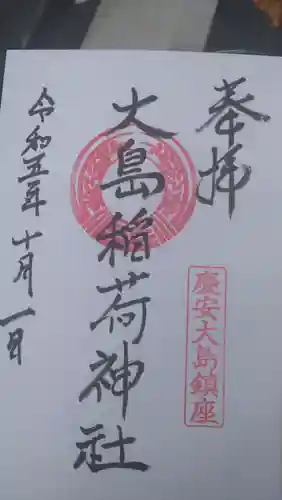 奉拝
大島稲荷神社
慶安大島鎮座
令和五年十月一日